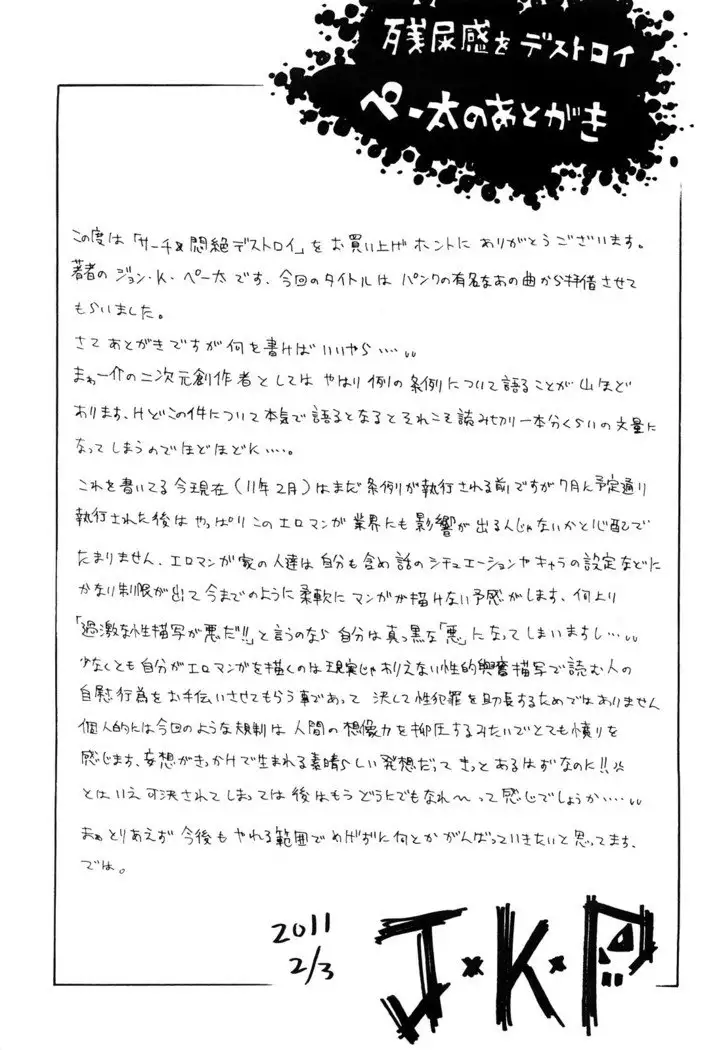 残尿感をデストロイ
ペー太のあとがき
この度は「サーチ&悶絶デストロイ」をお買い上げホントにありがとうございます。
著者のジョン・K・ペー太です、今回のタイトルはパンクの有名なあの曲から拝借させて
もらいました。
さてあとがきですが何を書けばいいやら‥‥
まぁ一介の二次元創作者としてはやはり例の条例について語ることが山ほど
あります、けどこの件について本気で語るとなるとそれこそ読み切り一本分くらいの文量に
なってしまうのでほどほどに‥‥。
これを書いてる今現在(11年2月)はまだ条例が執行される前ですが7月に予定通り
執行された後はやっぱりこのエロマンガ業界にも影響が出るんじゃないかと心配で
たまりません、エロマンガ家の人達は自分も含め話のシチュエーションやキャラの設定などに
かなり制限が出て今までのように柔軟にマンガが描けない予感がします、何より
「過激な性描写が悪だ!!」と言うのなら自分は真っ黒な「悪」になってしまいますし‥‥
少なくとも自分がエロマンガを描くのは現実じゃありえない性的興奮描写で読む人の
自慰行為をお手伝いさせてもらう事であって決して性犯罪を助長するためではありません
個人的には今回のような規制は人間の想像力を抑圧するみたいでとても憤りを
感じます、妄想がきっかけで生まれる素晴らしい発想だってきっとあるはずなのに!!
とはいえ可決されてしまっては後はもうどうにでもなれ〜って感じでしょうか‥‥
まぁとりあえず今後もやれる範囲でめげずに何とかがんばっていきたいと思ってます、
では。
2011
2/3
J×K×P